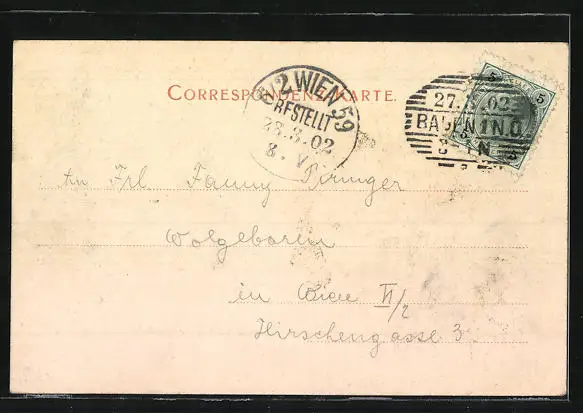 CORRESPONDENZ-KARTE.
2 WIEN 59
BESTELLT
28.3.02
8. V
27. 02
BADEN 1 N.Ö.
N
5 5
5
An Frl Fanny Piringer
Wolgeboren
in Wien VI/2
Hirschengasse 3.